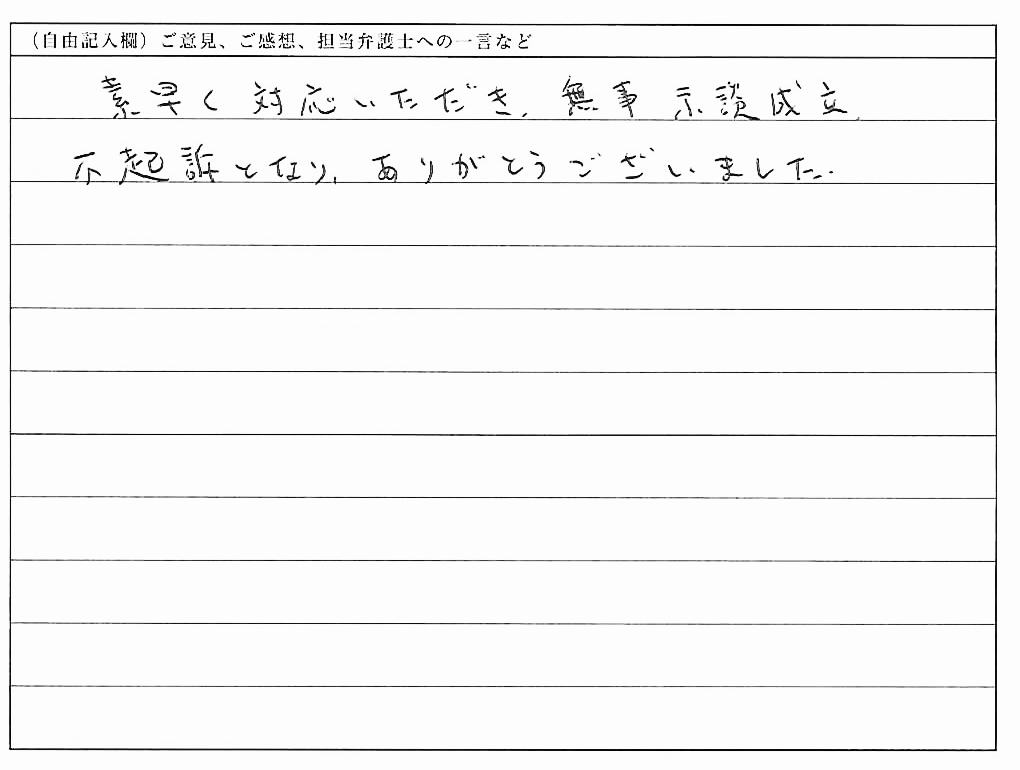 (自由記入欄)ご意見、ご感想、担当弁護士への一言など
素早く対応いただき、無事示談成立、
不起訴となり、ありがとうございました。